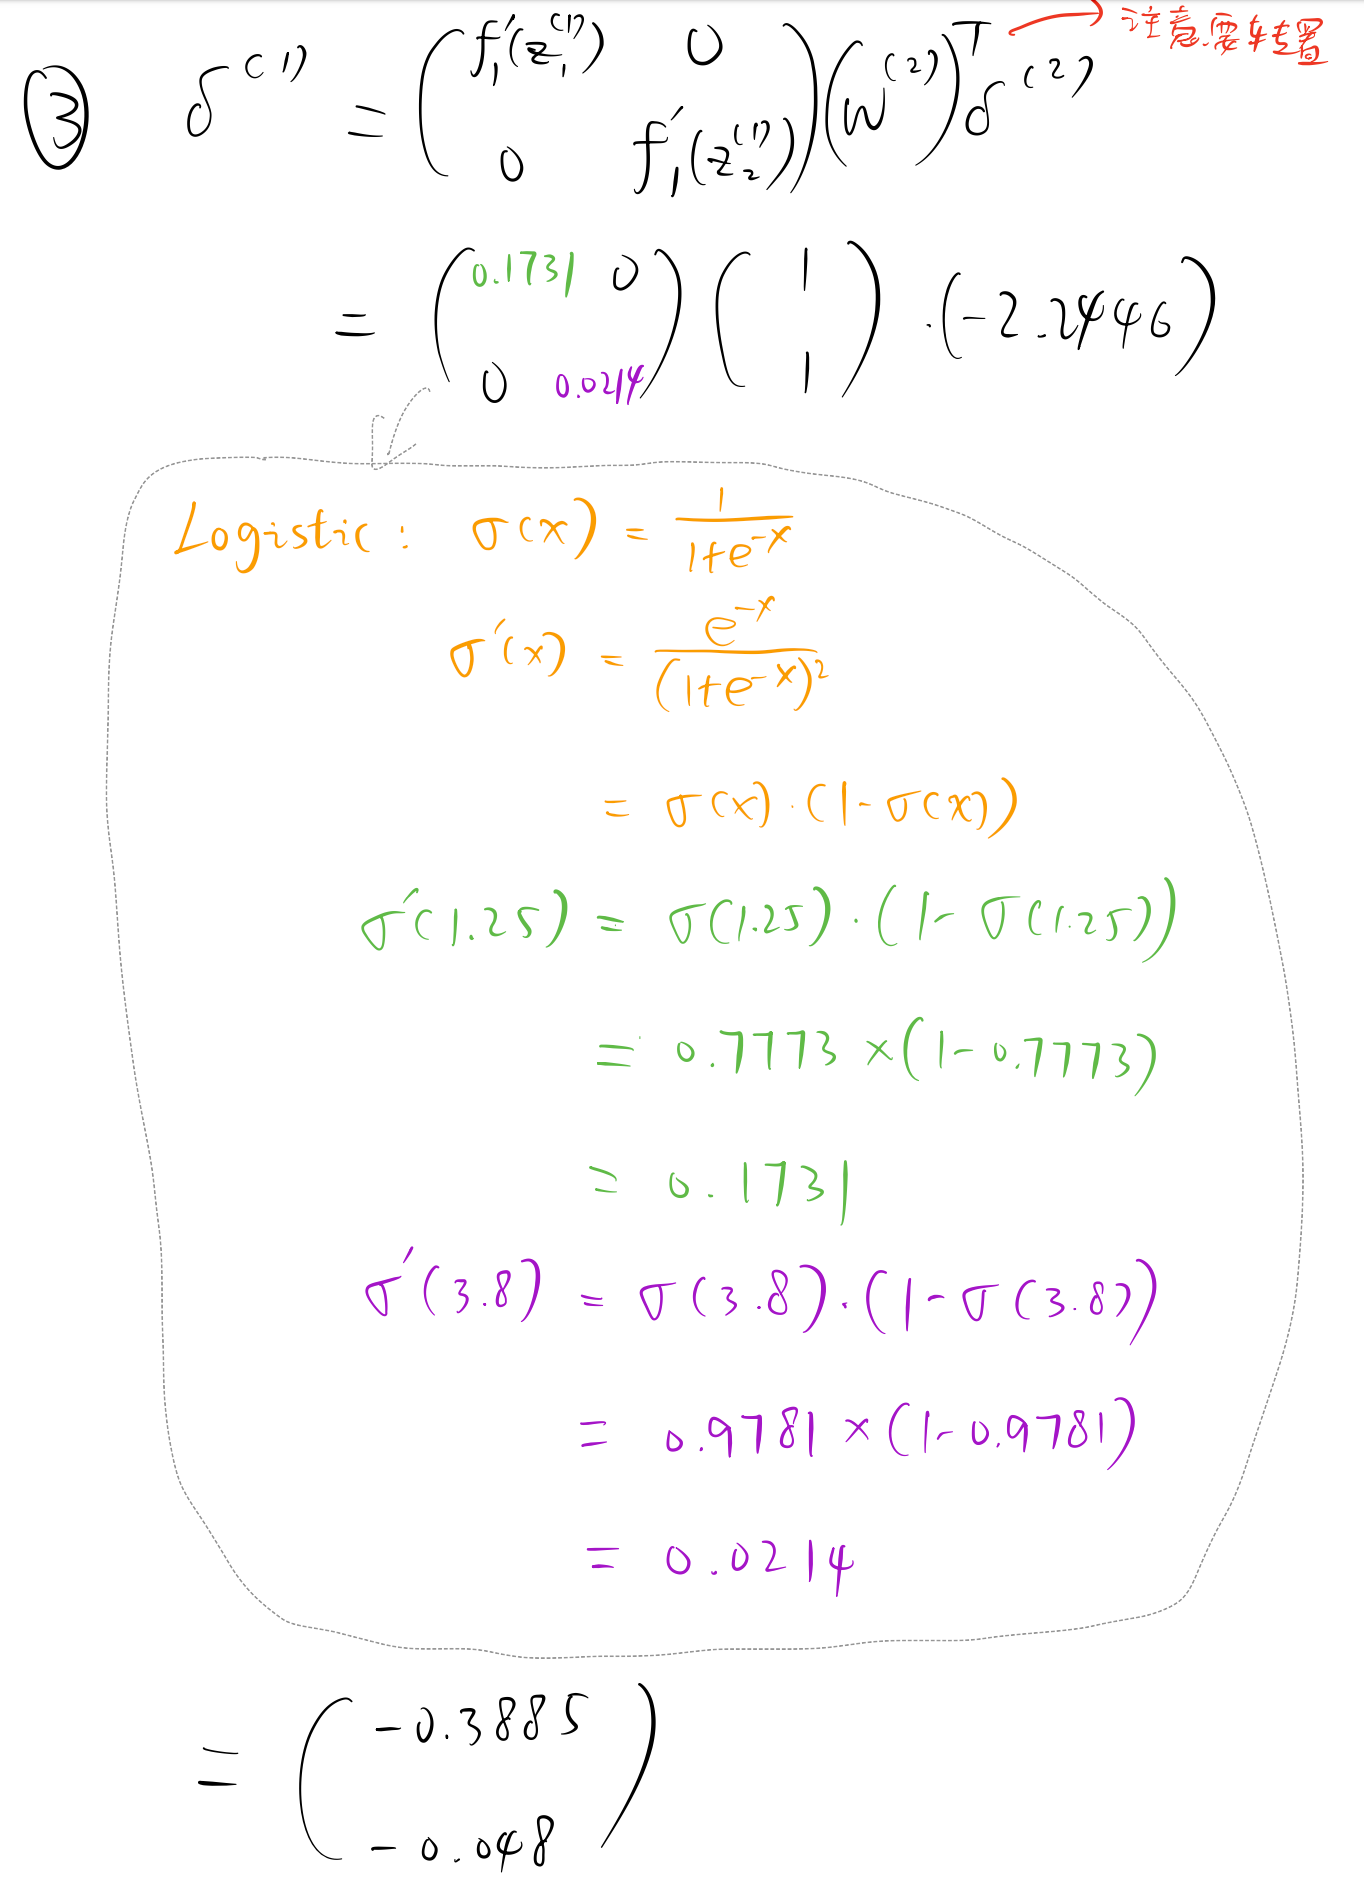 ③ δ⁽¹⁾ = ( f₁′(z₁⁽¹⁾) 0 ; 0 f₁′(z₂⁽¹⁾) ) (W⁽²⁾)ᵀ δ⁽²⁾ → 注意要转置
= ( 0.1731 0 ; 0 0.0214 ) ( 1 ; 1 ) · (-2.2446)
Logistic: σ(x) = 1/(1+e⁻ˣ)
σ′(x) = e⁻ˣ/(1+e⁻ˣ)²
= σ(x)·(1-σ(x))
σ′(1.25) = σ(1.25)·(1-σ(1.25))
= 0.7773×(1-0.7773)
= 0.1731
σ′(3.8) = σ(3.8)·(1-σ(3.8))
= 0.9781×(1-0.9781)
= 0.0214
= ( -0.3885 ; -0.048 )